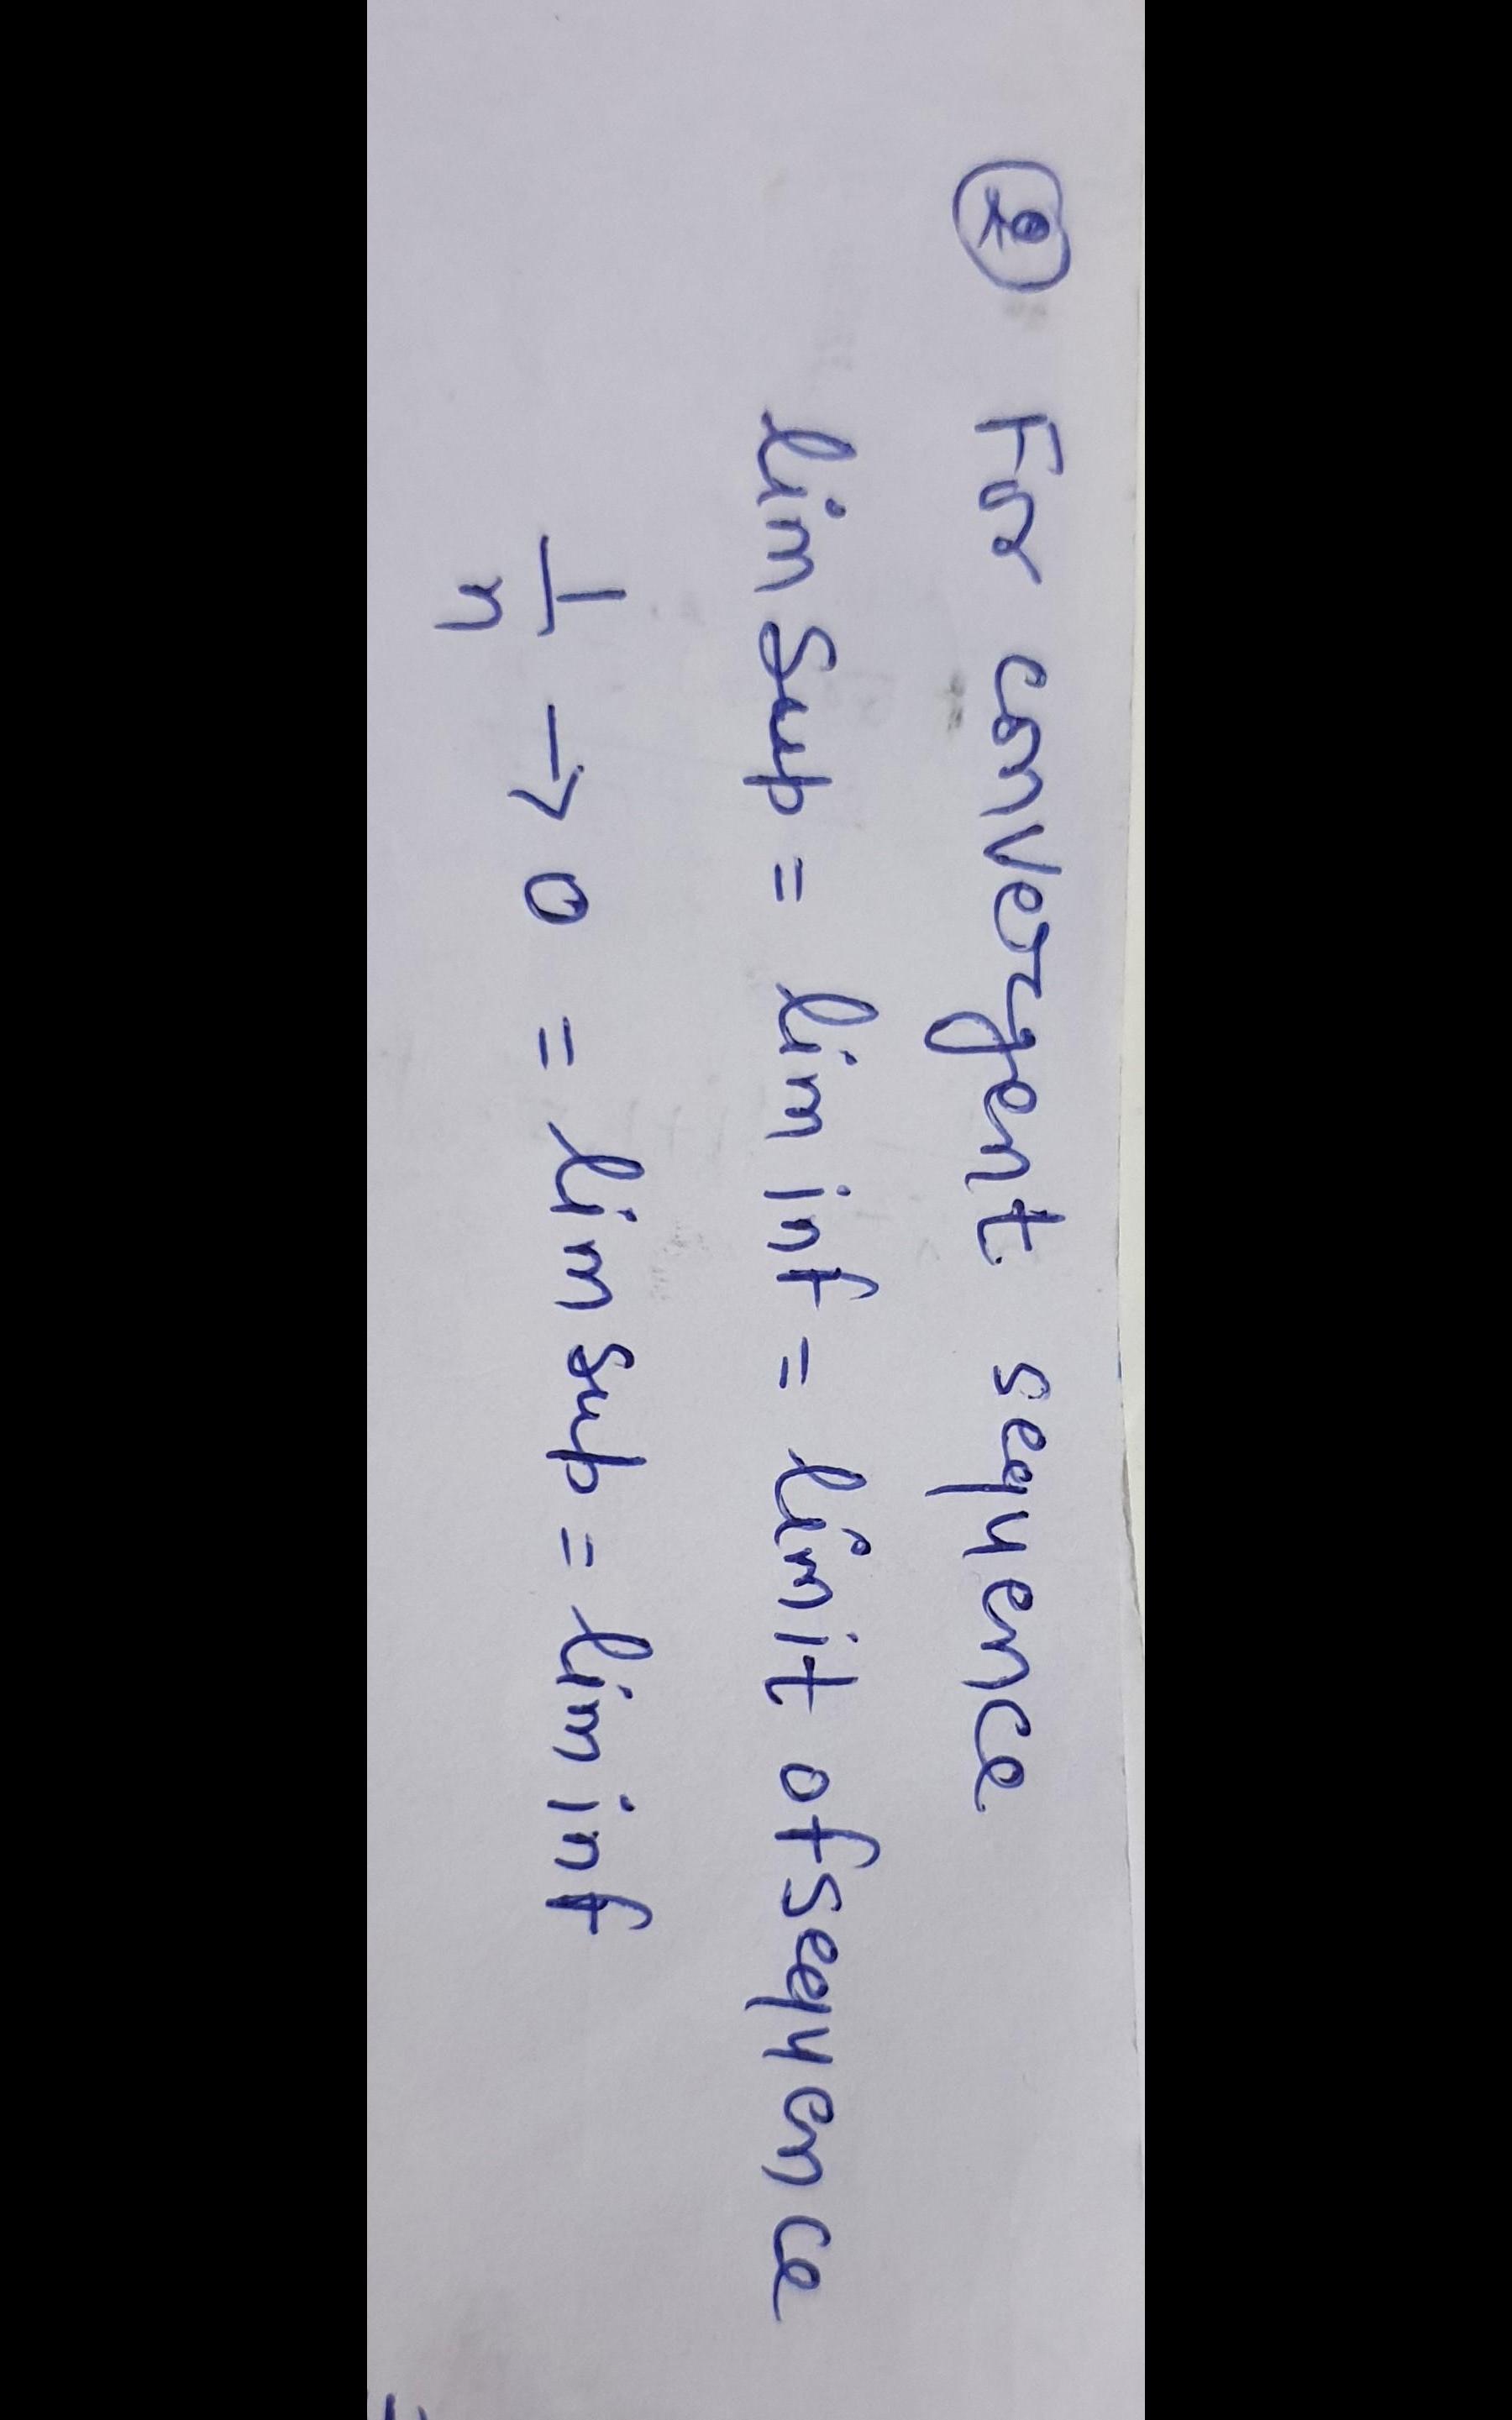 ② For convergent sequence
lim sup = lim inf = limit of sequence
1/n → 0 = lim sup = lim inf